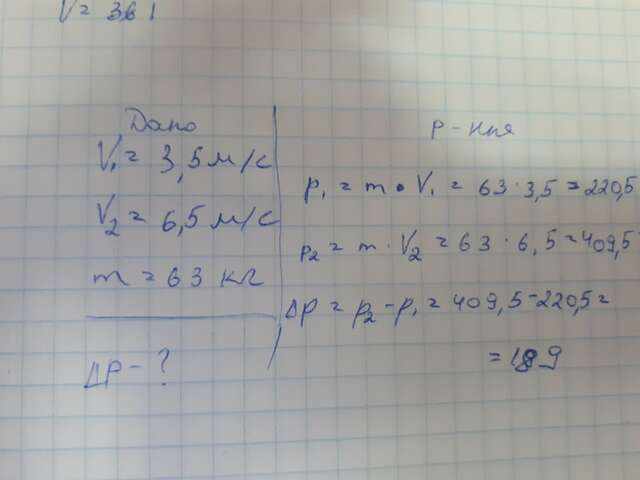 V = 361
Дано
V₁ = 3,5 м/с
V₂ = 6,5 м/с
m = 63 кг
ΔP - ?
Р - ння
p₁ = m • V₁ = 63 · 3,5 = 220,5
p₂ = m · V₂ = 63 · 6,5 = 409,5
ΔP = p₂ - p₁ = 409,5 - 220,5 =
= 189